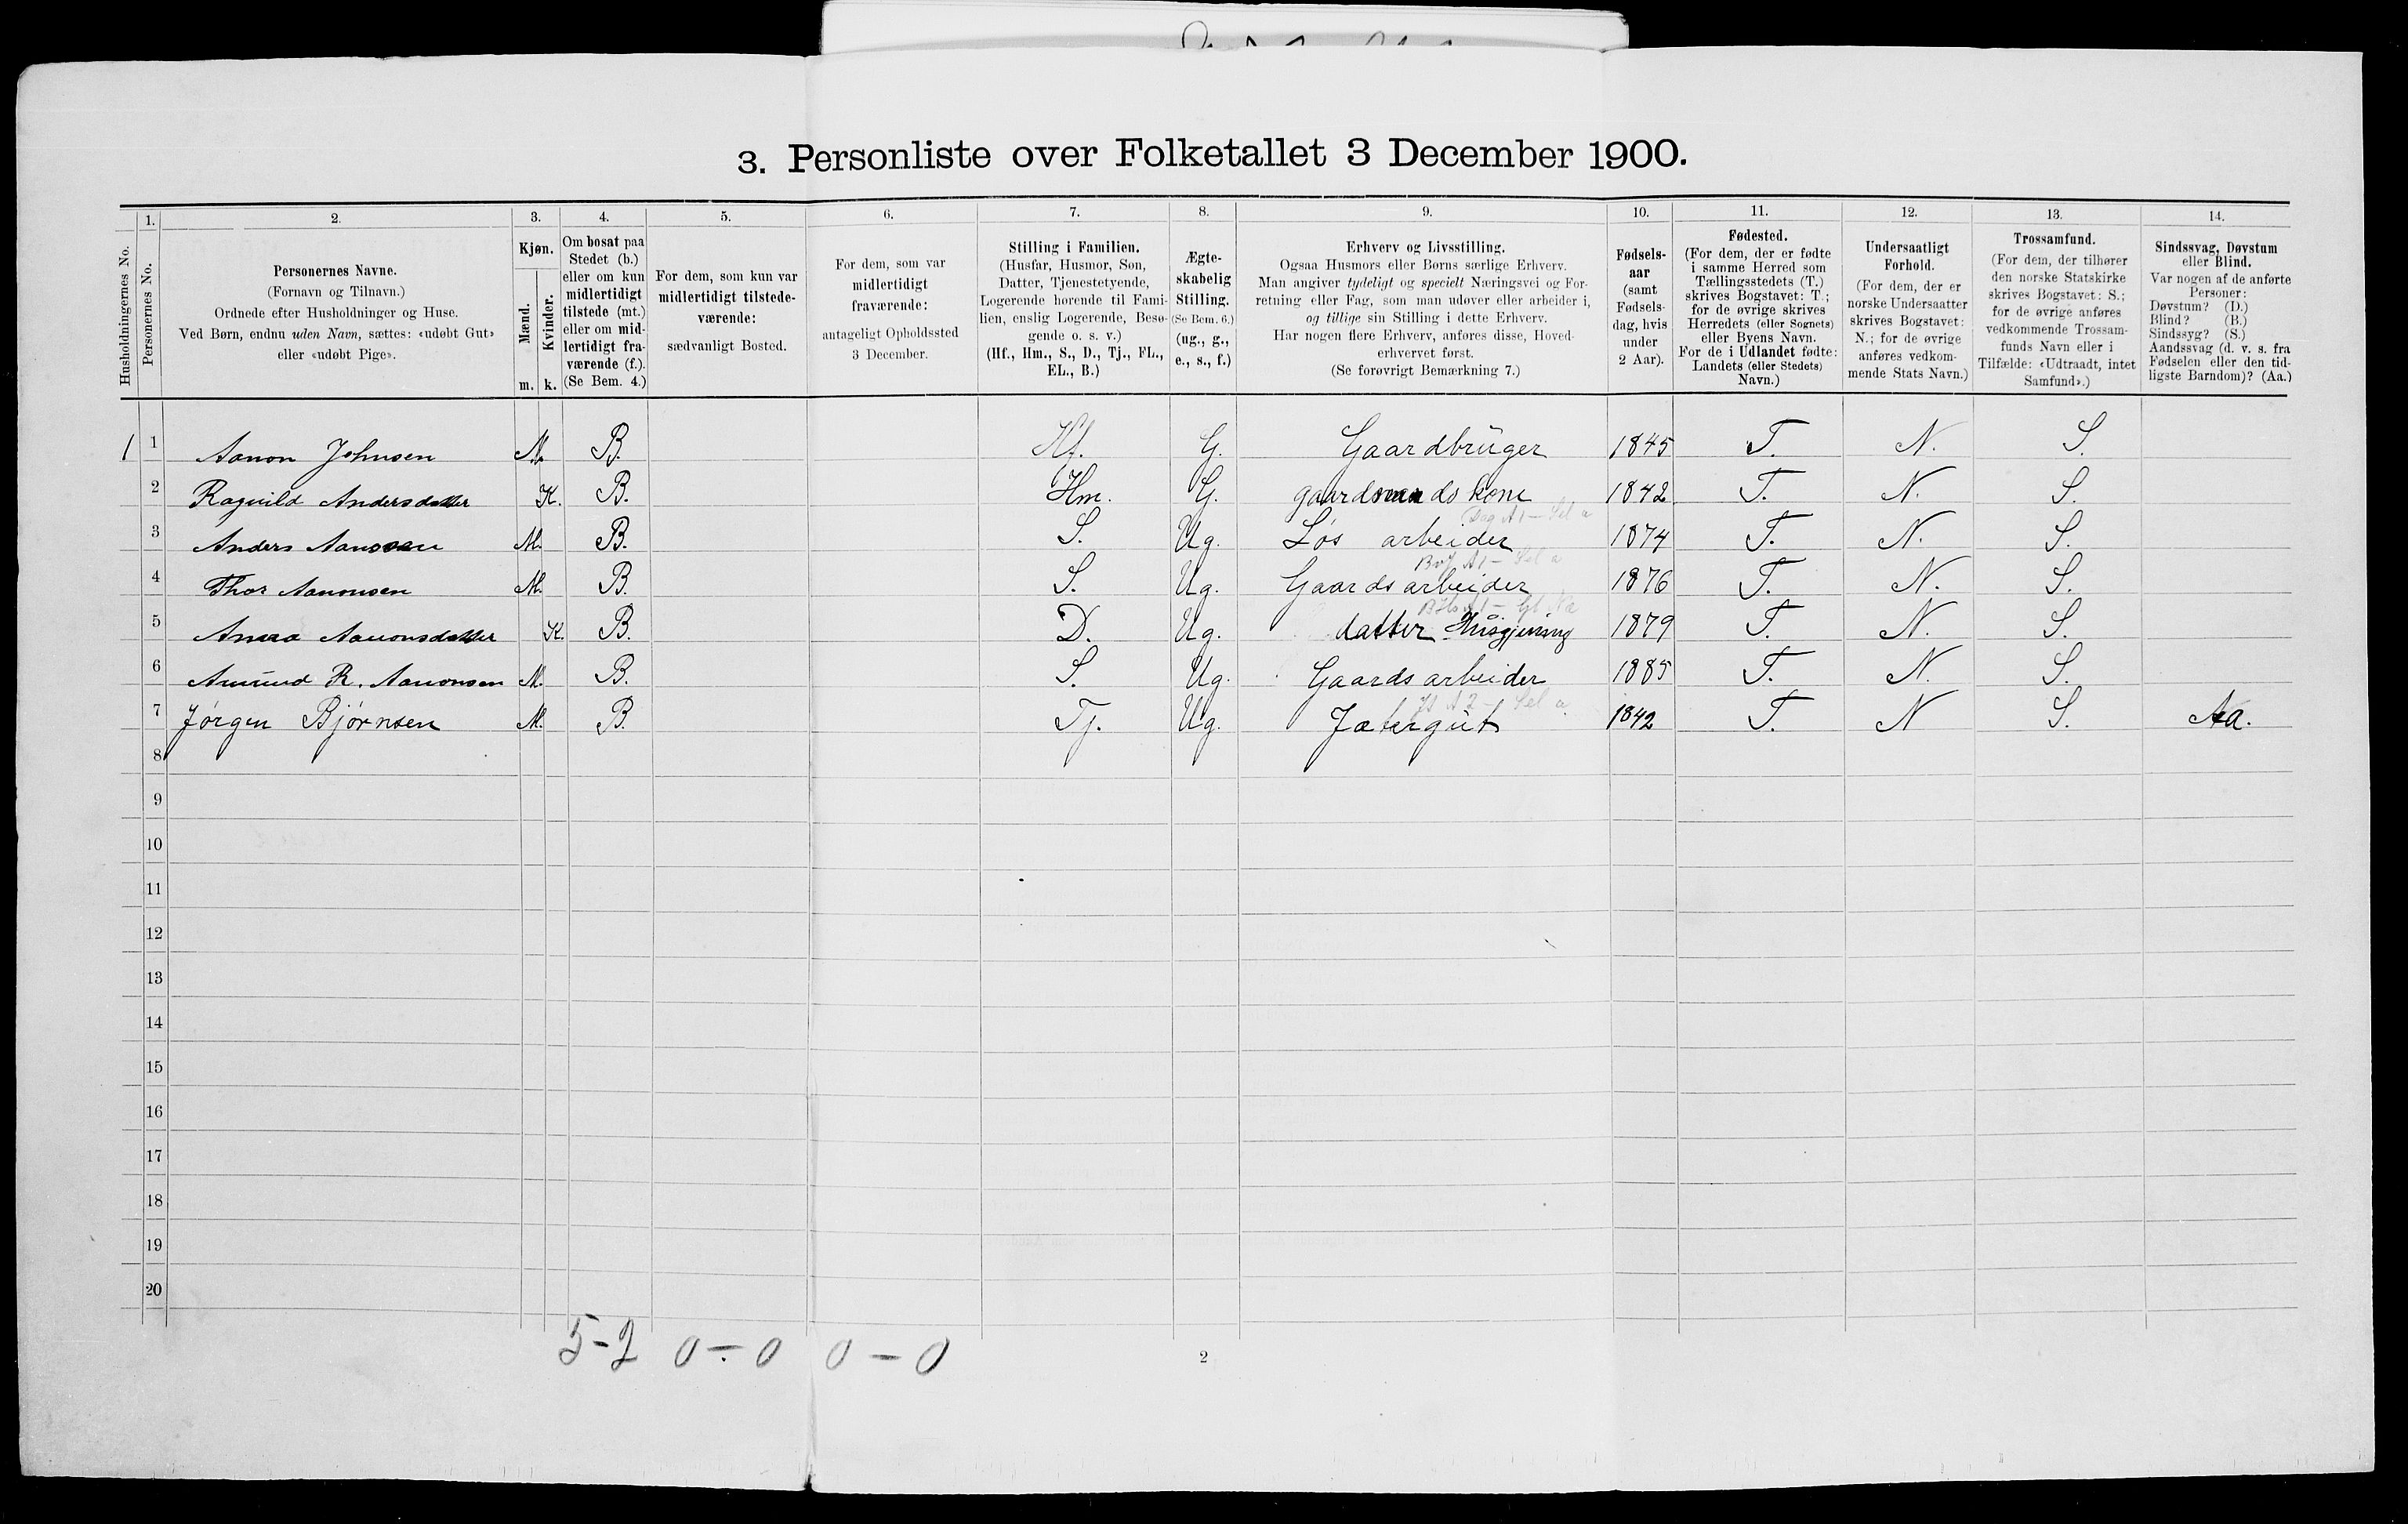 3. Personliste over Folketallet 3 December 1900.
1. 2. 3. 4. 5. 6. 7. 8. 9. 10. 11. 12. 13. 14.
Husholdningernes No.
Personernes No.
Personernes Navne.
(Fornavn og Tilnavn.)
Ordnede efter Husholdninger og Huse.
Ved Børn, endnu uden Navn, sættes: «udøbt Gut»
eller «udøbt Pige».
Kjøn.
Mænd.
Kvinder.
m. k.
Om bosat paa
Stedet (b.)
eller om kun
midlertidigt
tilstede (mt.)
eller om mid-
lertidigt fra-
værende (f.).
(Se Bem. 4.)
For dem, som kun var
midlertidigt tilstede-
værende:
sædvanligt Bosted.
For dem, som var
midlertidigt
fraværende:
antageligt Opholdssted
3 December.
Stilling i Familien.
(Husfar, Husmor, Søn,
Datter, Tjenestetyende,
Logerende hørende til Fami-
lien, enslig Logerende, Besø-
gende o. s. v.)
(Hf., Hm., S., D., Tj., FL.,
EL., B.)
Ægte-
skabelig
Stilling.
(Se Bem. 6.)
(ug., g.,
e., s., f.)
Erhverv og Livsstilling.
Ogsaa Husmors eller Børns særlige Erhverv.
Man angiver tydeligt og specielt Næringsvei og For-
retning eller Fag, som man udøver eller arbeider i,
og tillige sin Stilling i dette Erhverv.
Har nogen flere Erhverv, anføres disse, Hoved-
erhvervet først.
(Se forøvrigt Bemærkning 7.)
Fødsels-
aar
(samt
Fødsels-
dag, hvis
under
2 Aar).
Fødested.
(For dem, der er fødte
i samme Herred som
Tællingsstedets (T.)
skrives Bogstavet: T.;
for de øvrige skrives
Herredets (eller Sognets)
eller Byens Navn.
For de i Udlandet fødte:
Landets (eller Stedets)
Navn.)
Undersaatligt
Forhold.
(For dem, der er
norske Undersaatter
skrives Bogstavet:
N.; for de øvrige
anføres vedkom-
mende Stats Navn.)
Trossamfund.
(For dem, der tilhører
den norske Statskirke
skrives Bogstavet: S.;
for de øvrige anføres
vedkommende Trossam-
funds Navn eller i
Tilfælde: «Udtraadt, intet
Samfund».)
Sindssvag, Døvstum
eller Blind.
Var nogen af de anførte
Personer:
Døvstum? (D.)
Blind? (B.)
Sindssyg? (S.)
Aandssvag (d. v. s. fra
Fødselen eller den tid-
ligste Barndom)? (Aa.)
1 1 Aanon Johnsen M. B. Hf. G. Gaardbruger 1845 T. N. S.
2 Ragnild Andersdatter K. B. Hm. G. gaardmands kone 1842 T. N. S.
3 Anders Aanosen M. B. S. Ug. Løs arbeider 1874 T. N. S.
4 Thor Aanonsen M. B. S. Ug. Gaards arbeider 1876 T. N. S.
5 Aanonsdatter K. B. D. Ug. datter Husgjerning 1879 T. N. S.
6 Amund R. Aanonsen M. B. S. Ug. Gaards arbeider 1885 T. N. S.
7 Jørgen Bjørnsen M. B. Tj. Ug. Jætergut 1842 T. N S. Aa.
8
9
10
11
12
13
14
15
16
17
18
19
20
5-2 0-0 0-0
2